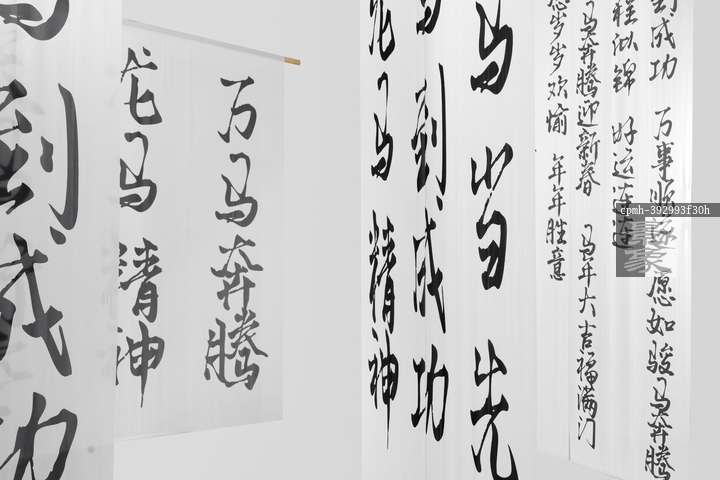 马到成功
万马奔腾
龙马精神
马当先
马到成功
龙马精神
到成功 万事顺 愿如骏马奔腾
程似锦 好运连连
马奔腾迎新春 马年大吉福满门
岁岁欢愉 年年胜意
cpmh-392993f30h